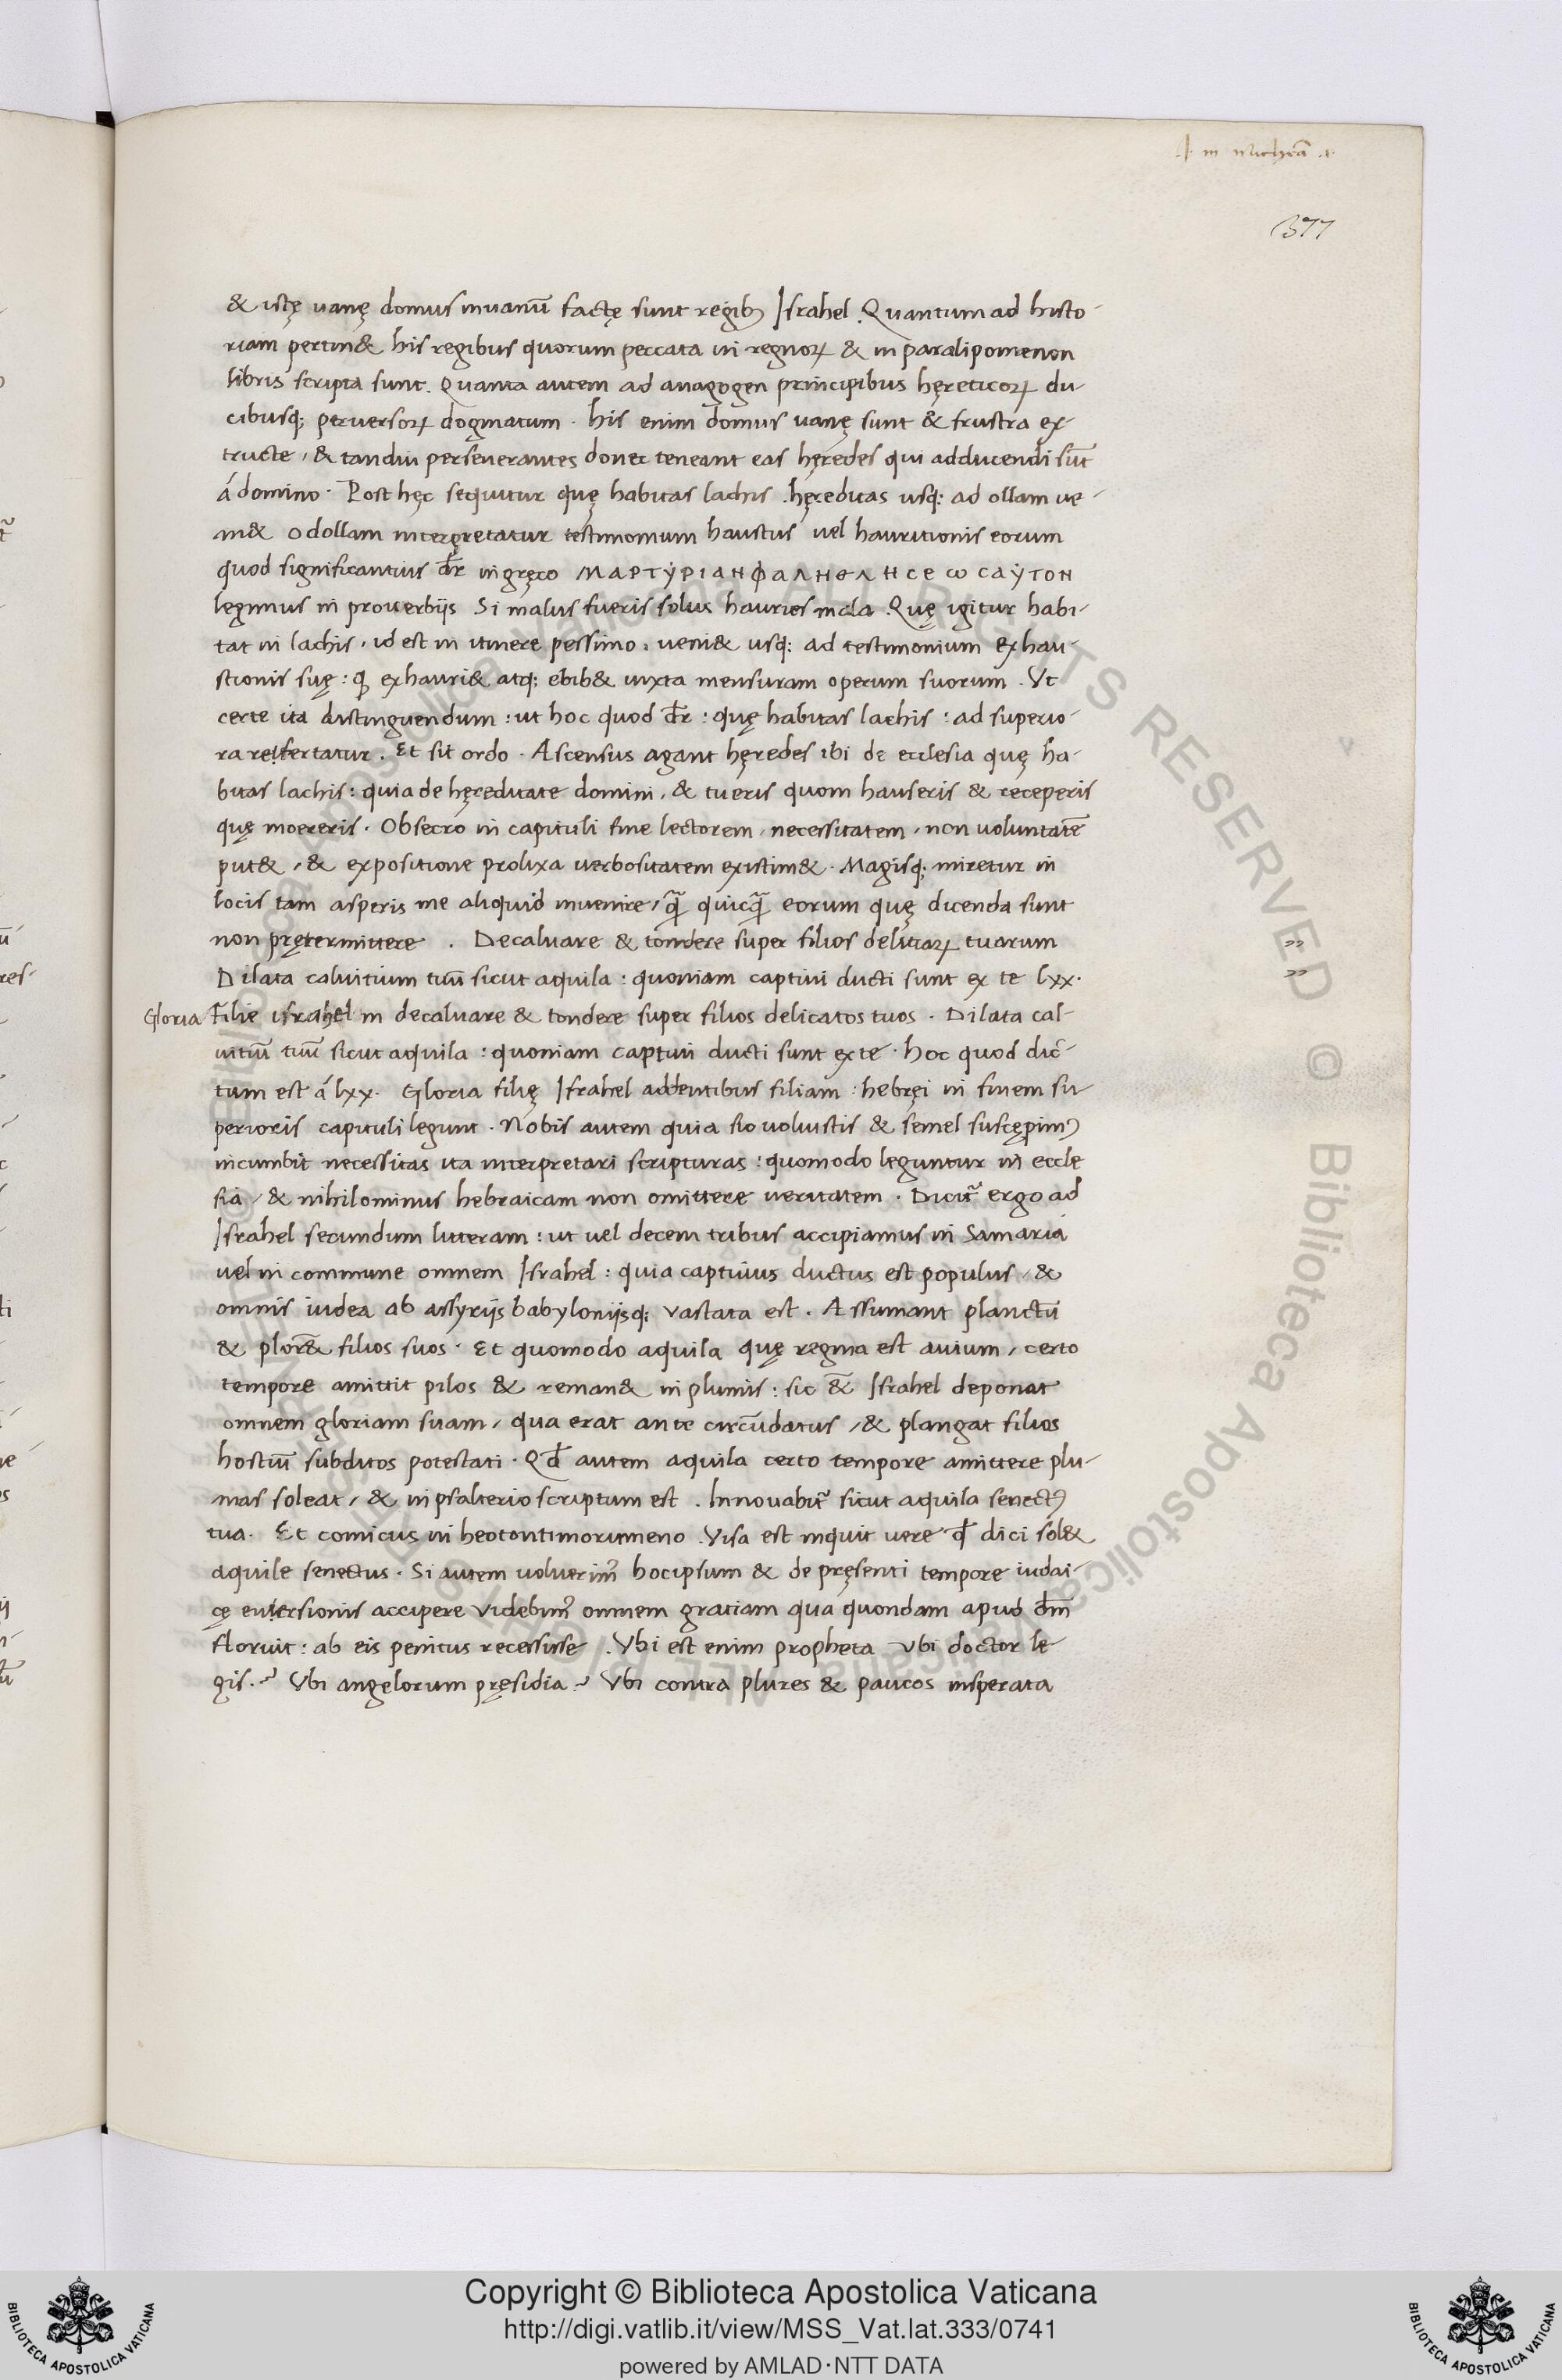 377
& istę uanę domus inuanū factę sunt regibꝫ Israhel. Quantum ad histo-
riam pertin& his regibus quorum peccata in regnoꝝ & in paralipomenon
libris scripta sunt. Quanta autem ad anagogen principibus hęreticoꝝ du-
cibusq; peruersoꝝ dogmatum. his enim domus uanę sunt & frustra ex-
tructe, & tandiu perseuerantes donec teneant eas hęredes qui adducendi sūt
á domino. Post hęc sequitur quę habitas lachis. hęreditas usq: ad ollam ue-
ni& odollam interpretatur testimonium haustus uel hauritionis eorum
quod significantius dr̄ in gręco ΜΑΡΤΥΡΙΑΝ
legimus in prouerbijs Si malus fueris solus hauries mala. Quę igitur habi-
tat in lachis, id est in itinere pessimo, ueni& usq: ad testimonium exhau-
stionis suę: ꝙ exhauri& atq; ebib& iuxta mensuram operum suorum. Ut
certe ita distinguendum: ut hoc quod dr̄: quę habitas lachis: ad superio-
ra reffertatur. Et sit ordo. Ascensus agant hęredes ibi de ecclesia quę ha-
bitas lachis: quia de hęreditate domini, & tu eris quom hauseris & receperis
quę moereris. Obsecro in capituli fine lectorem, necessitatem, non voluntatē
put&, & expositione prolixa uerbositatem existim&. Magisq; miretur in
locis tam asperis me aliquid inuenire, qᷓ quicqᷓ eorum quę dicenda sunt
non prętermittere. Decaluare & tondere super filios delitiaꝝ tuarum
Dilata caluitium tuū sicut aquila: quoniam captiui ducti sunt ex te lxx.
Gloria Filie israhel in decaluare & tondere super filios delicatos tuos. Dilata cal-
uitiū tuū sicut aquila: quoniam captiui ducti sunt ex te. hoc quod dic-
tum est á lxx. Gloria filię Israhel addentibus filiam: hebręi in finem su-
perioris capituli legunt. Nobis autem quia sio uoluistis & semel suscępimꝰ
incumbit necessitas ita interpretari scripturas: quomodo leguntur in eccle
sia, & nihilominus hebraicam non omittere ueritatem. Dicit᷑ ergo ad
Israhel secundum litteram: ut uel decem tribus accipiamus in Samaria
uel in commune omnem Israhel: quia captiuus ductus est populus, &
omnis iudea ab assyrijs babylonijsq; vastata est. Assumant planctū
& plor& filios suos. Et quomodo aquila quę regina est auium, certo
tempore amittit pilos & reman& in plumis: sic &̄ Israhel deponat
omnem gloriam suam, qua erat ante circūdatus, & plangat filios
hostiū subditos potestati. Qđ autem aquila certo tempore amittere plu-
mas soleat, & in psalterio scriptum est. Innouabit᷑ sicut aquila senectꝰ
tua. Et comicus in heotontimorumeno. Visa est inquit uere qđ dici sol&
aquile senectus. Si autem uoluerimꝰ hocipsum & de pręsenti tempore iudai-
cę euersionis accipere videbimꝰ omnem gratiam qua quondam apud dm̄
floruit: ab eis penitus recessisse. Vbi est enim propheta vbi doctor le-
gis.? Vbi angelorum pręsidia? Vbi contra plures & paucos insperata
Copyright © Biblioteca Apostolica Vaticana
http://digi.vatlib.it/view/MSS_Vat.lat.333/0741
powered by AMLAD·NTT DATA